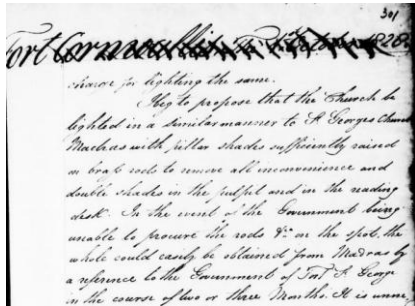 301
Fort Cornwallis 1828
charge for lighting the same.
I beg to propose that the Church be
lighted in a similar manner to St. Georges Church
Madras with pillar shades sufficiently raised
on brass rods to remove all inconvenience and
double shades in the pulpit and in the reading
desk. In the event of the Government being
unable to procure the rods &c. on the spot, the
whole could easily be obtained from Madras by
a reference to the Government of Fort St. George
in the course of two or three Months. It is